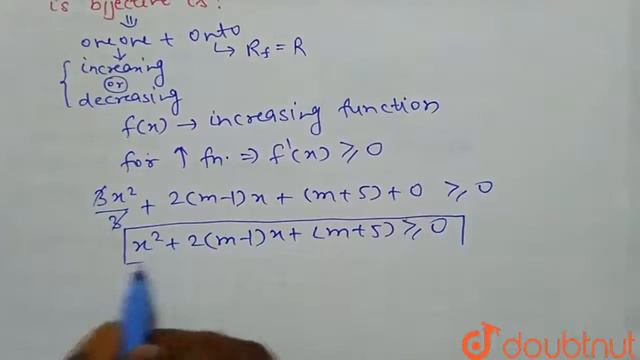 is bijective is?
⇓
one one + onto
↓ ↳ Rf = R
{ increasing
or
decreasing
f(x) → increasing function
for ↑ fn. ⇒ f'(x) ≥ 0
3x²/3 + 2(m-1)x + (m+5) + 0 ≥ 0
x² + 2(m-1)x + (m+5) ≥ 0
doubtnut